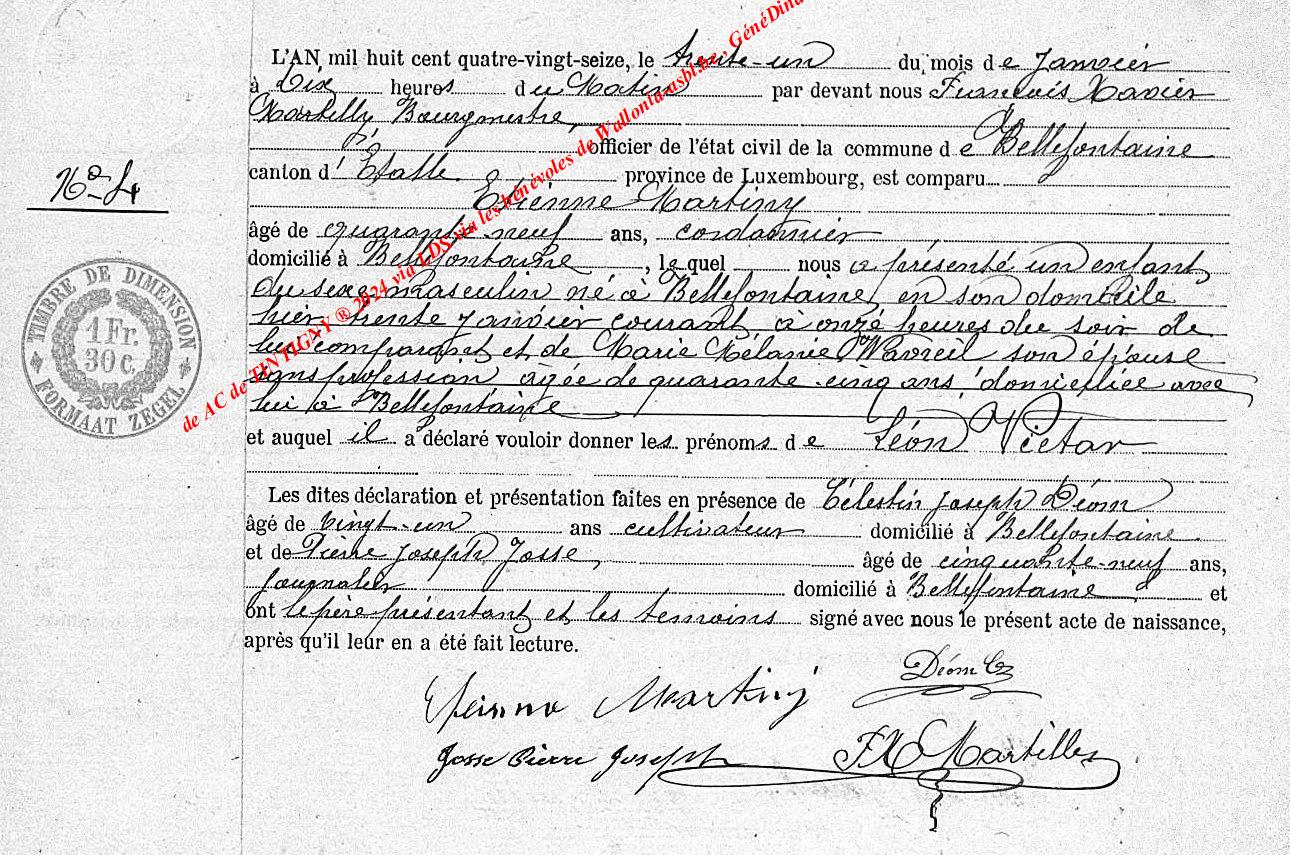 L'AN mil huit cent quatre-vingt-seize, le trente-un du mois de Janvier
à dix heures du Matin par devant nous François Xavier
Martilly Bourgmestre,
officier de l'état civil de la commune de Bellefontaine
canton d'Etalle province de Luxembourg, est comparu
N° 4
Etienne Martiny
âgé de quarante-neuf ans, cordonnier
domicilié à Bellefontaine, lequel nous a présenté un enfant
du sexe masculin né à Bellefontaine, en son domicile
hier trente Janvier courant, à onze heures du soir de
lui comparant et de Marie Mélanie Wavreil son épouse
sans profession, âgée de quarante-cinq ans domiciliée avec
lui à Bellefontaine
et auquel il a déclaré vouloir donner les prénoms de Léon Victor
Les dites déclaration et présentation faites en présence de Célestin Joseph Déom
âgé de vingt-un ans cultivateur domicilié à Bellefontaine
et de Pierre Joseph Josse, âgé de cinquante-neuf ans,
Journalier domicilié à Bellefontaine et
ont le père présentant et les temoins signé avec nous le présent acte de naissance,
après qu'il leur en a été fait lecture.
Déom C
Etienne Martiny
Josse Pierre Joseph FX Martilly
TIMBRE DE DIMENSION
1 Fr.
30 c.
FORMAAT ZEGEL
de AC de TINTIGNY ® 2024 via LDS via les bénévoles de Wallonia-asbl.be, GénéDina